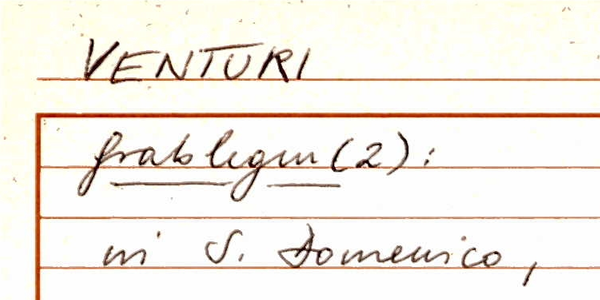 VENTURI
Grablegun (2):
in S. Domenico,